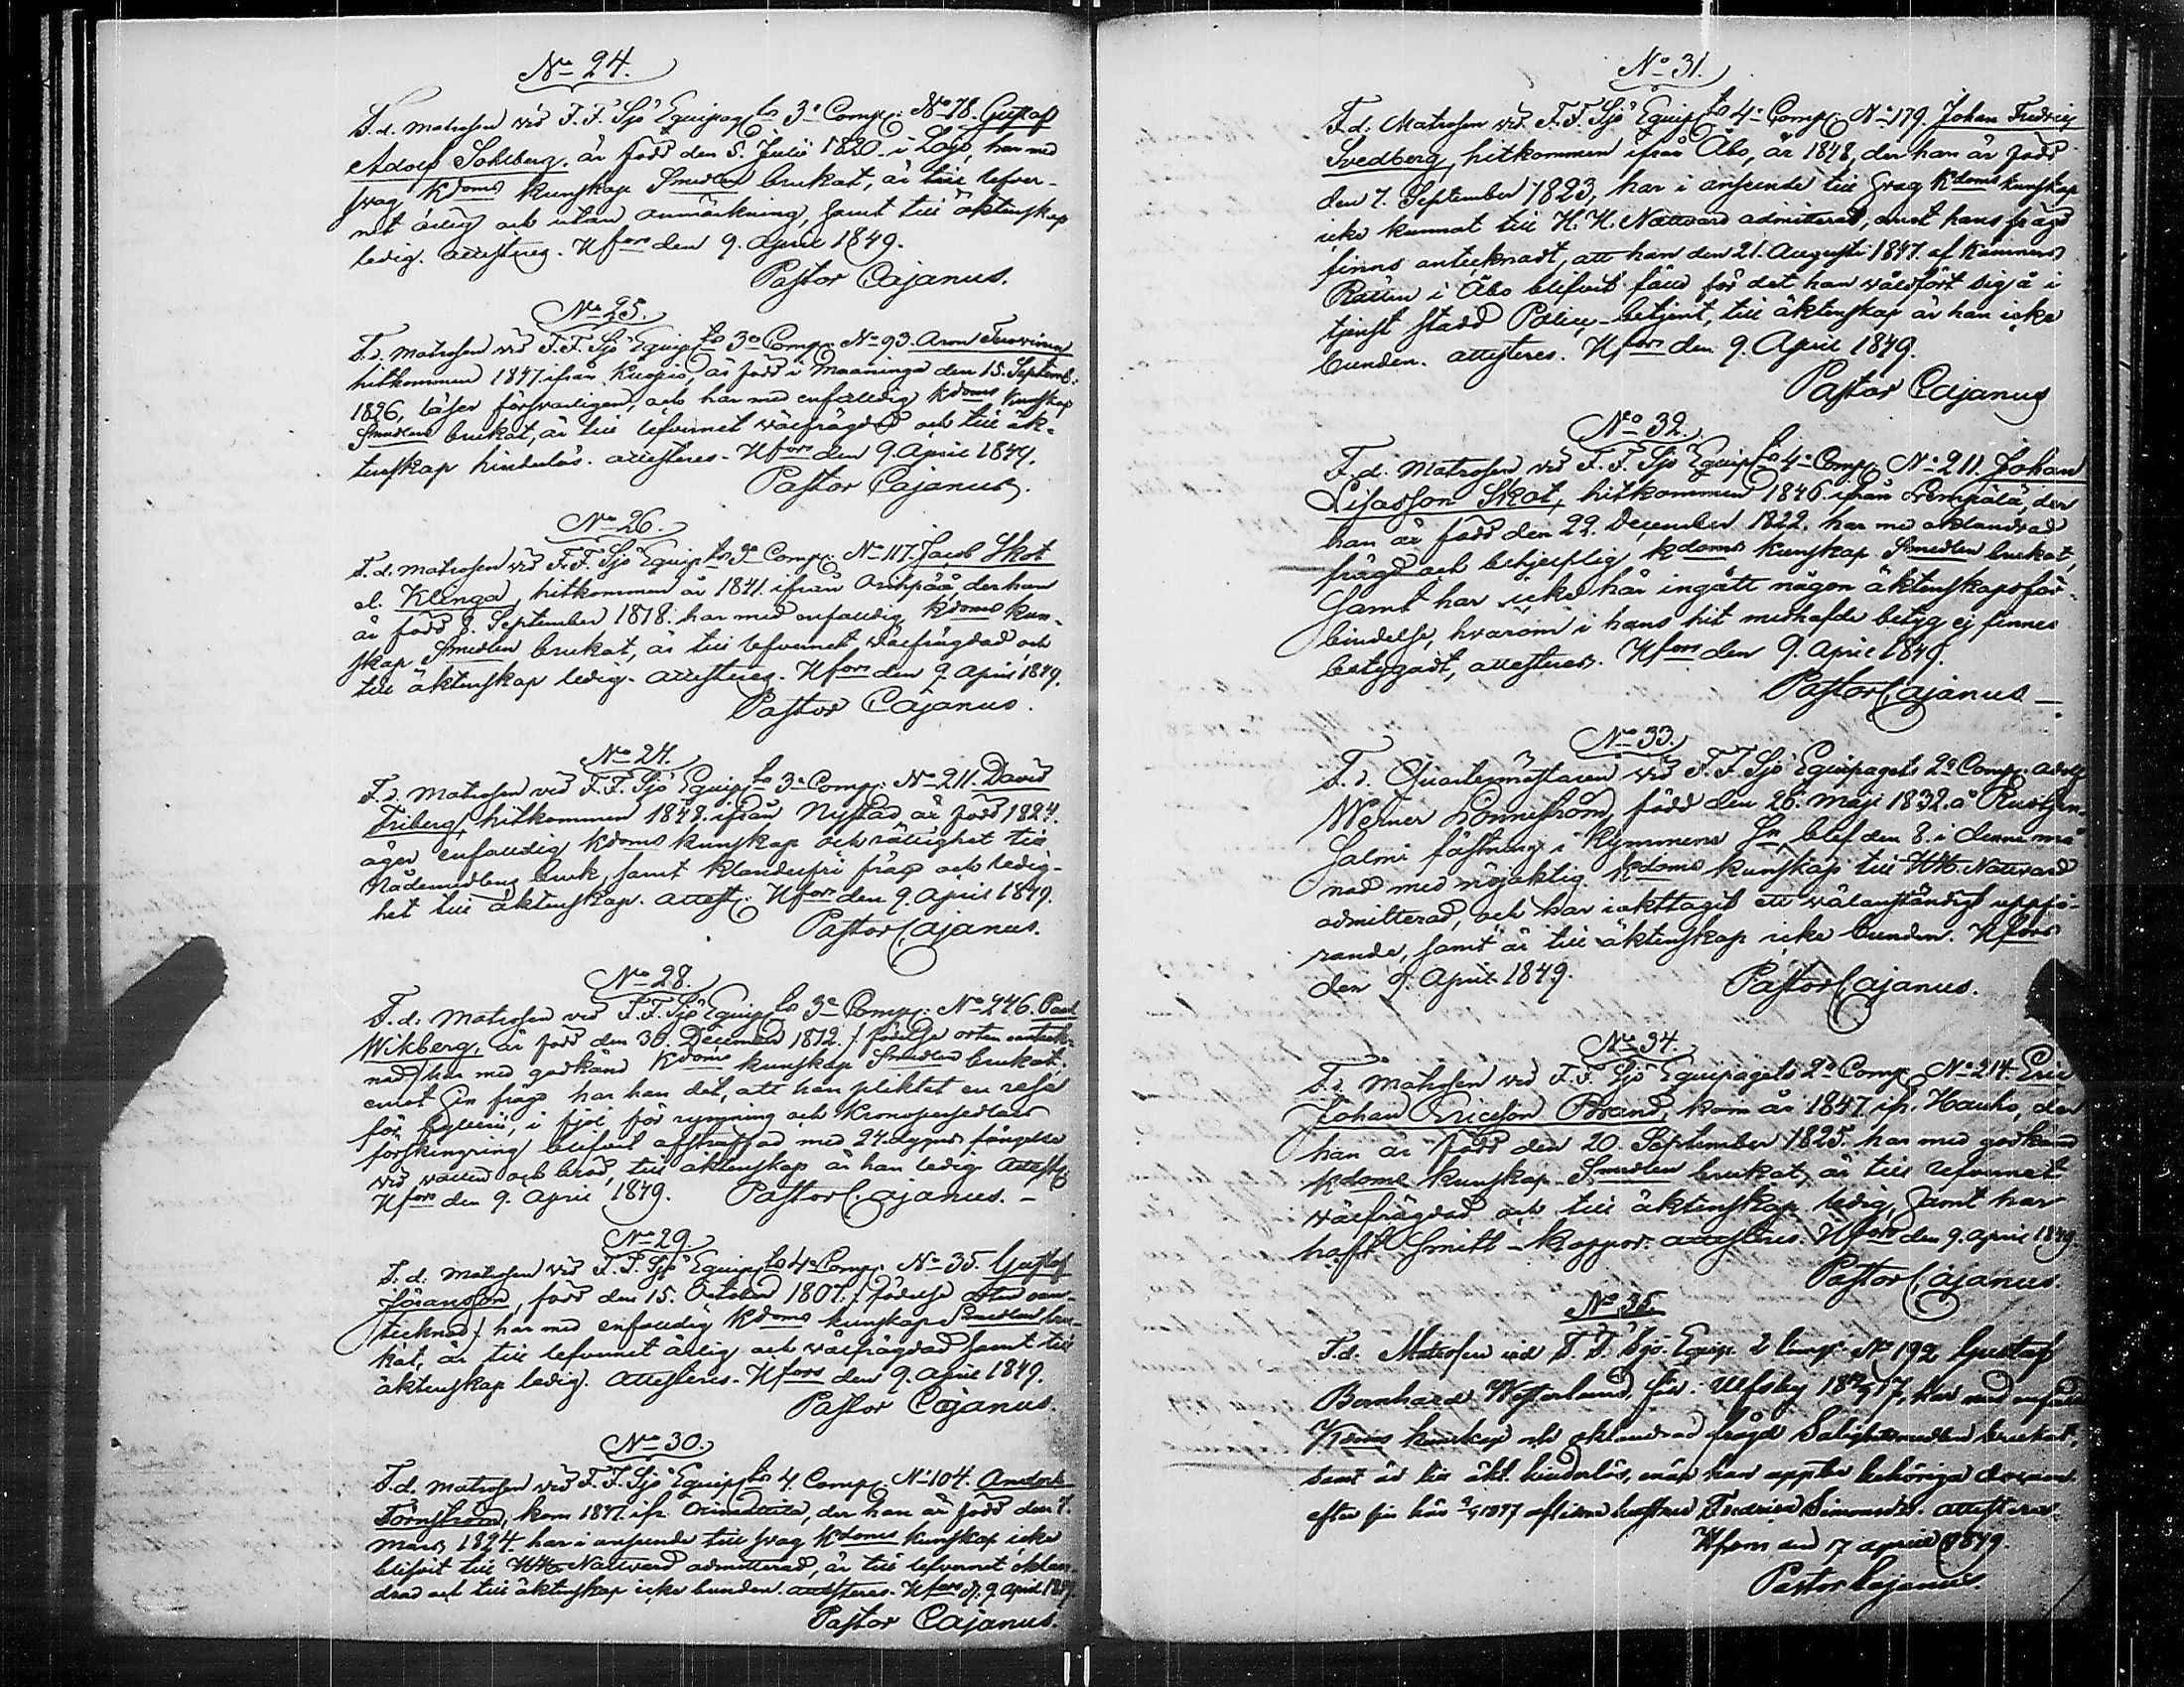 No 24.
F.d. Matrosen vid F.F. Sjö Equipag ts 3e Comp: No 78. Gustaf
Adolf Sohlberg. är född den 5. Julii 1820 i Lojo, har med
svag Kdoms kunskap Smedlen brukat, är till lefver-
net ärlig och utan anmärkning, samt till äktenskap
ledig. attesteras. Hfors den 9. April 1849.
Pastor Cajanus.
No 25.
F.d. Matrosen vid F.F. Sjö Equip ts 3e Comp. No 93. Aron
hitkommen 1847 ifrån Kuopio, är född i Maaninga den 15. Septemb:
1826, läser försvarligen, och har med enfaldig Kdoms kunskap
Smedlen brukat, är till lefvernet välfrägdad och till äk-
tenskap hinderlös. attesteras. Hfors den 9 April 1849.
Pastor Cajanus.
No 26.
F.d. Matrosen vid F.F. Sjö Equip ts 3e Comp: No 117. Jacob Skot
el. Klinga, hitkommen år 1841. ifrån Orihpää, der han
är född 8. September 1818. har med enfaldig Kdoms kun-
skap Smedlen brukat, är till lefvernet välfrägdad och
till äktenskap ledig. attesteras. Hfors den 9. April 1849.
Pastor Cajanus.
No 27.
F.d. Matrosen vid F.F. Sjö Equip ts 3e Comp: No 211. David
Friberg, hitkommen 1848. ifrån Nystad, är född 1824.
äger enfaldig Kdoms kunskap och rättighet till
Nådemedlens bruk, samt klanderfri frägd och ledig-
het till äktenskap. attest: Hfors den 9. April 1849.
Pastor Cajanus.
No 28.
F.d. Matrosen vid F.F. Sjö Equip ts 3e Comp: No 246. Paul
Wikberg, är född den 30. December 1812. /: födelse orten
har med godkänd Kdoms kunskap Smedlen brukat.
emot sin frägd har han det, att han pliktat en resa
för fylleri, i fjol för rymning och Kronopersedlars
förskingring blifvit afstraffad med 24. dygns fängelse
vid vatten och bröd, till äktenskap är han ledig. Attest:
Hfors den 9. April 1849. Pastor Cajanus. -
No 29.
F.d. Matrosen vid F.F. Sjö Equip ts 4e Comp: No 35. Gustaf
Göransson, född den 15. October 1807. /: födelse orten oan-
tecknad :/ har med enfaldig Kdoms kunskap Smedlen bru-
kat, är till lefvernet ärlig och välfrägdad samt till
äktenskap ledig. attesteras. Hfors den 9. April 1849.
Pastor Cajanus.
No 30.
F.d. Matrosen vid F.F. Sjö Equip ts 4. Comp: No 104. Anders
Törnström, kom 1847. ifr. Orimattila, der han är född den 7.
Mars 1824. har i anseende till svag Kdoms kunskap icke
blifvit till HH. Nattvard admitterad, är till lefvernet oklan-
drad och till äktenskap icke bunden. attesteras. Hfors d. 9. April 1849.
Pastor Cajanus.
No 31.
F.d. Matrosen vid F.F. Sjö Equip ts 4e Comp: No 179. Johan Fredric
Svedberg, hitkommen ifrån Åbo, år 1848, der han är född
den 7. September 1823, har i anseende till svag Kdoms kunskap
icke kunnat till H.H. Nattvard admitteras, emot hans frägd
finns antecknadt, att han den 21. Augusti 1847. af Kämners
Rätten i Åbo blifvit fäld för det han våldfört sig å i
tjenst stadd Police-betjent, till äktenskap är han icke
bunden. attesteras. Hfors den 9. April 1849.
Pastor Cajanus
No 32.
F.d. Matrosen vid F.F. Sjö Equip ts 4e Comp. No 211. Johan
Skot, hitkommen 1846. ifrån Lempälä, der
han är född den 29. December 1822. har med oklandrad
frägd och behjelplig Kdoms kunskap Smedlen brukat,
samt har icke här ingått någon äktenskapsför-
bindelse, hvarom i hans hit medhafde betyg ej finnes
betygadt, attesteras. Hfors den 9. April 1849.
Pastor Cajanus -
No 33.
F.d. Quartermästaren vid F.F. Sjö Equipagets 2e Comp: Adolf
Werner Lönneström, född den 26. Maji 1832. å Ruotsen-
salmi fästning i Kymmene Sn, blef den 8. i denne må-
nad med nöjaktig Kdoms kunskap till HH. Nattvard
admitterad, och har iakttagit ett välanständigt uppfö-
rande, samt är till äktenskap icke bunden. Hfors
den 9. April 1849. Pastor Cajanus.
No 34.
F.d. Matrosen vid F.F. Sjö Equipagets 2e Comp. No 214. Eric
Johan Ericsson Brand, kom år 1847 ifr. Hauho, der
han är född den 20. September 1825. har med godkänd
Kdoms kunskap Smedlen brukat, är till lefvernet
välfrägdad och till äktenskap ledig, samt har
haft Smitt-koppor. attesteras. Hfors den 9. April 1849
Pastor Cajanus.
No 35.
F.d. Matrosen vid F.F. Sjö Equip. 2 Comp: No 192 Gustaf
Bernhard Westerlund, Ulfsby har med enfaldig
Kdoms kunskap och oklandrad frägd Salighetsmedlen brukat,
samt är till äkt. hinderlös, har behöriga
efter sin Fredrica attesteras
Hfors den 17 april 1849.
Pastor Cajanus.